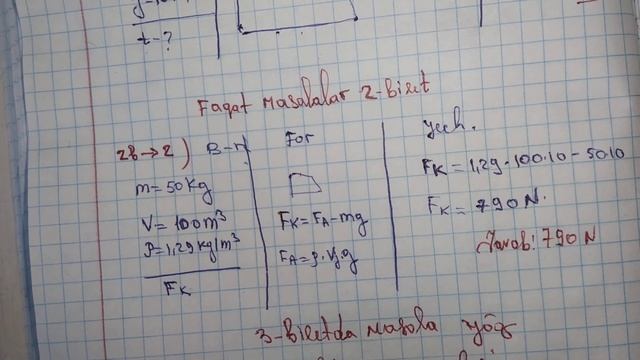 t-?
Faqat masalalar 2-bilet
2b→2) B-n
m=50kg
V=100m³
ρ=1,29kg/m³
Fк
For
Fк=FA-mg
FA=ρ·Vg
yech.
Fк=1,29·100·10-50·10
Fк=790N.
Javob: 790N
3-biletda masala yôq